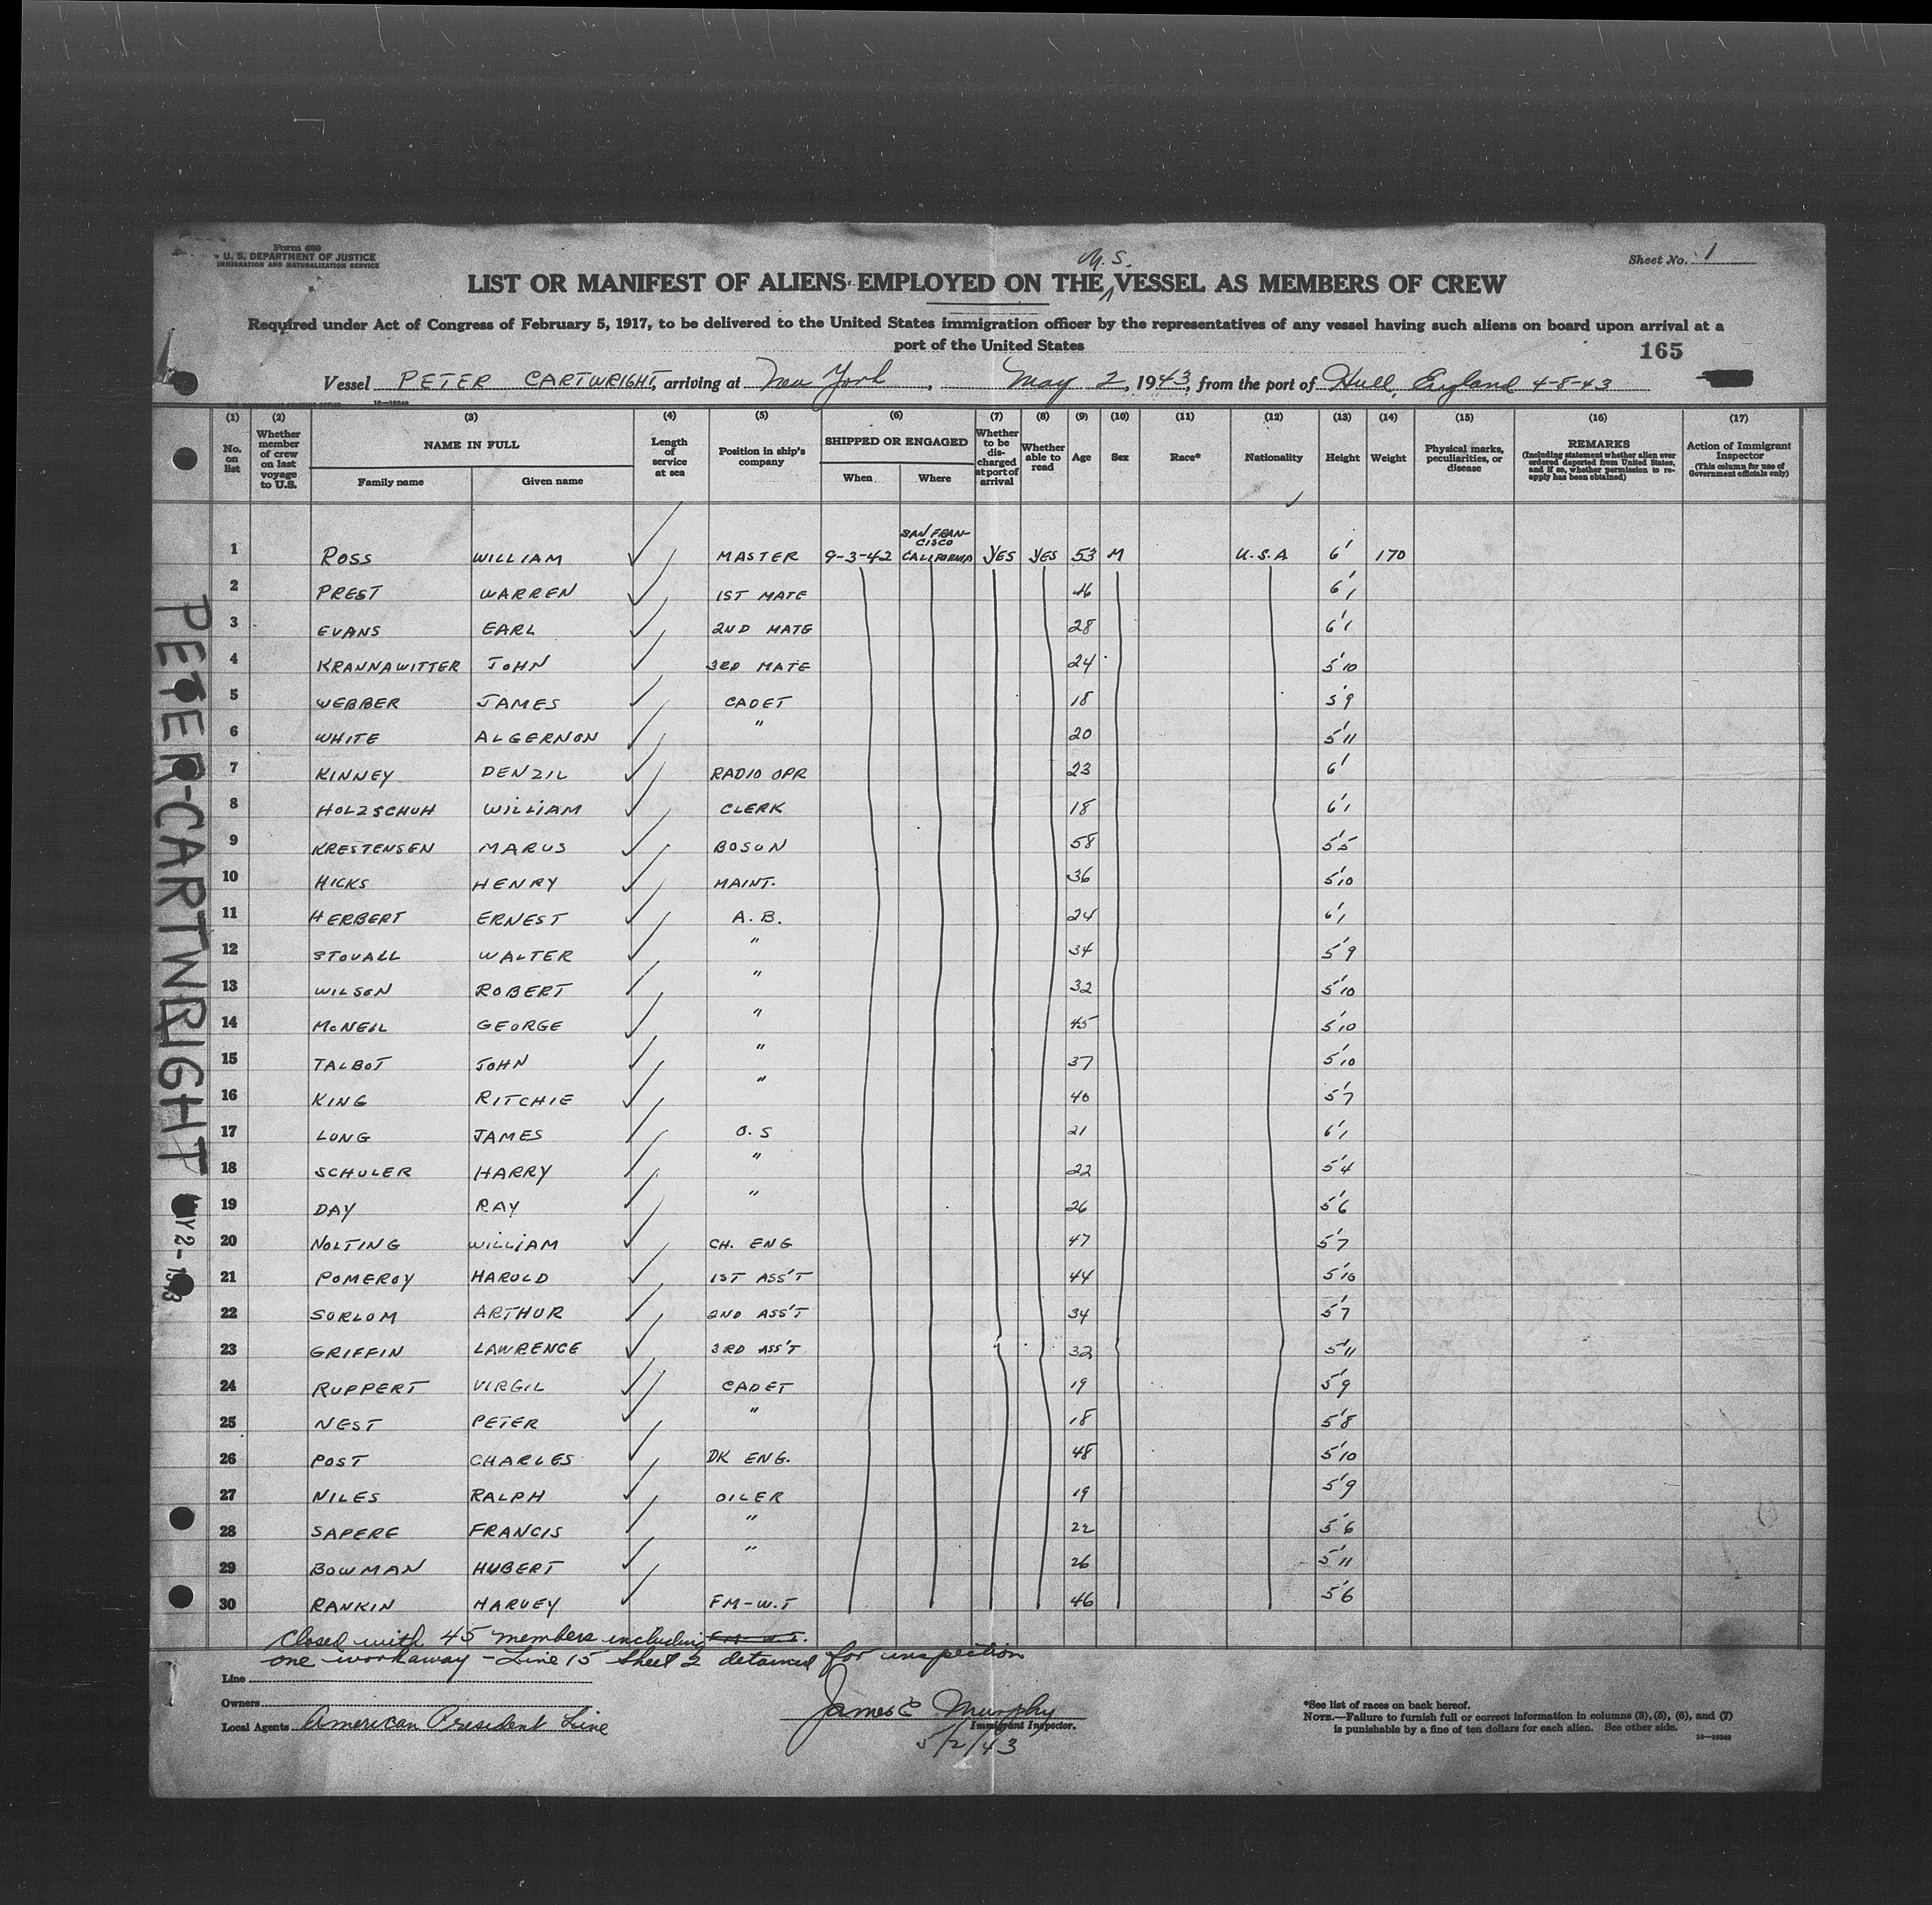 Form 680
U. S. DEPARTMENT OF JUSTICE
IMMIGRATION AND NATURALIZATION SERVICE
Sheet No. 1
U.S.
LIST OR MANIFEST OF ALIENS EMPLOYED ON THE VESSEL AS MEMBERS OF CREW
Required under Act of Congress of February 5, 1917, to be delivered to the United States immigration officer by the representatives of any vessel having such aliens on board upon arrival at a
port of the United States
165
Vessel PETER CARTWRIGHT, arriving at New York, May 2, 1943, from the port of Hull, England 4-8-43
(1) (2) (3) (4) (5) (6) (7) (8) (9) (10) (11) (12) (13) (14) (15) (16) (17)
No. on list
Whether member of crew on last voyage to U.S.
NAME IN FULL
Family name
Given name
Length of service at sea
Position in ship's company
SHIPPED OR ENGAGED
When
Where
Whether to be discharged at port of arrival
Whether able to read
Age
Sex
Race*
Nationality
Height
Weight
Physical marks, peculiarities, or disease
REMARKS
(Including statement whether alien ever ordered deported from United States, and if so, whether permission to reapply has been obtained)
Action of Immigrant Inspector
(This column for use of Government officials only)
1 ROSS WILLIAM MASTER 9-3-42 SAN FRANCISCO CALIFORNIA YES YES 53 M U.S.A 6' 170
2 PREST WARREN 1ST MATE 46 6'1
3 EVANS EARL 2ND MATE 28 6'1
4 KRANNAWITTER JOHN 3RD MATE 24 5'10
5 WEBBER JAMES CADET 18 5'9
6 WHITE ALGERNON " 20 5'11
7 KINNEY DENZIL RADIO OPR 23 6'
8 HOLZSCHUH WILLIAM CLERK 18 6'1
9 KRESTENSEN MARUS BOSUN 58 5'5
10 HICKS HENRY MAINT. 36 5'10
11 HERBERT ERNEST A.B. 24 6'1
12 STOVALL WALTER " 34 5'9
13 WILSON ROBERT " 32 5'10
14 McNEIL GEORGE " 45 5'10
15 TALBOT JOHN " 37 5'10
16 KING RITCHIE " 40 5'7
17 LONG JAMES O.S 21 6'1
18 SCHULER HARRY " 22 5'4
19 DAY RAY " 26 5'6
20 NOLTING WILLIAM CH. ENG 47 5'7
21 POMEROY HAROLD 1ST ASS'T 44 5'10
22 SORLOM ARTHUR 2ND ASS'T 34 5'7
23 GRIFFIN LAWRENCE 3RD ASS'T 32 5'11
24 RUPPERT VIRGIL CADET 19 5'9
25 NEST PETER " 18 5'8
26 POST CHARLES DK ENG. 48 5'10
27 NILES RALPH OILER 19 5'9
28 SAPERE FRANCIS " 22 5'6
29 BOWMAN HUBERT " 26 5'11
30 RANKIN HARVEY FM-W.T 46 5'6
Closed with 45 members including
one workaway - Line 15 Sheet 2 detained for inspection
Line
Owners
Local Agents American President Line
James E Murphy
Immigrant Inspector.
5/2/43
*See list of races on back hereof.
NOTE.—Failure to furnish full or correct information in columns (3), (5), (6), and (7)
is punishable by a fine of ten dollars for each alien. See other side.
16—19340
PETER-CARTWRIGHT